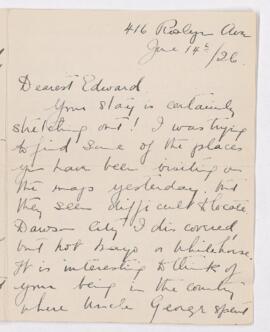 416 Roslyn Ave
June 14th/26.
Dearest Edward
Your stay is certainly
stretching out! I was trying
to find some of the places
you have been visiting on
the maps yesterday. but
they seem difficult to locate
Dawson City I discovered,
but not Mayo or Whitehorse.
It is interesting to think of
your being in the country
where Uncle George spent